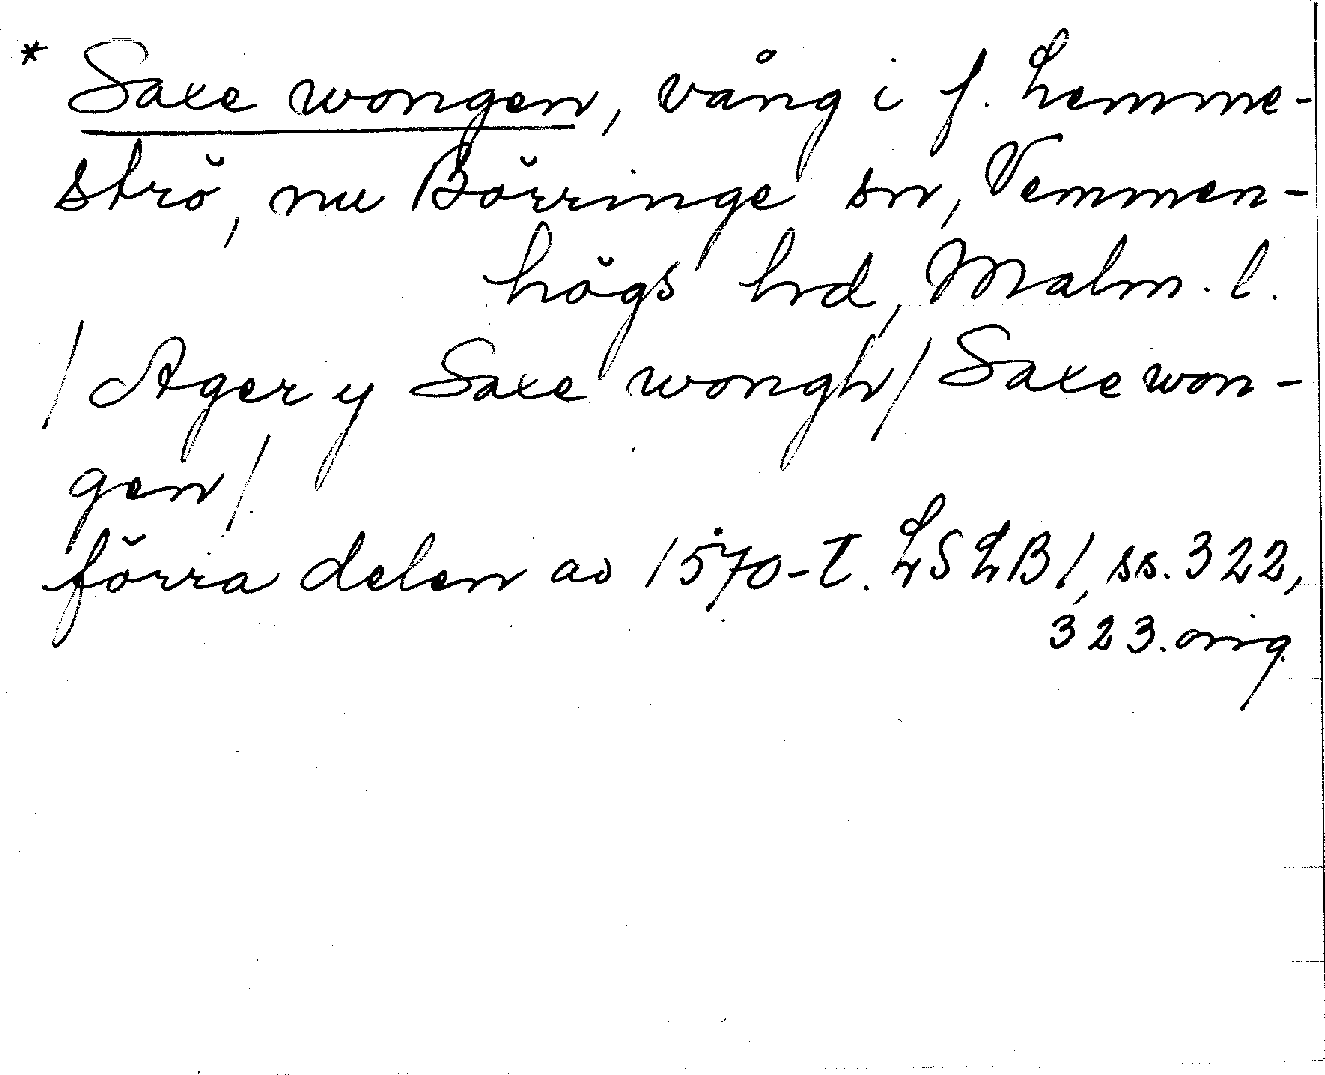 * Saxe wongen, vång i f. Lemme-
strö, nu Börringe sn, Vemmen-
högs hrd, Malm. l.
/Ager y Saxe wongh/ Saxe won-
gen/
förra delen av 1570-t. LSLB1, ss. 322,
323. orig.